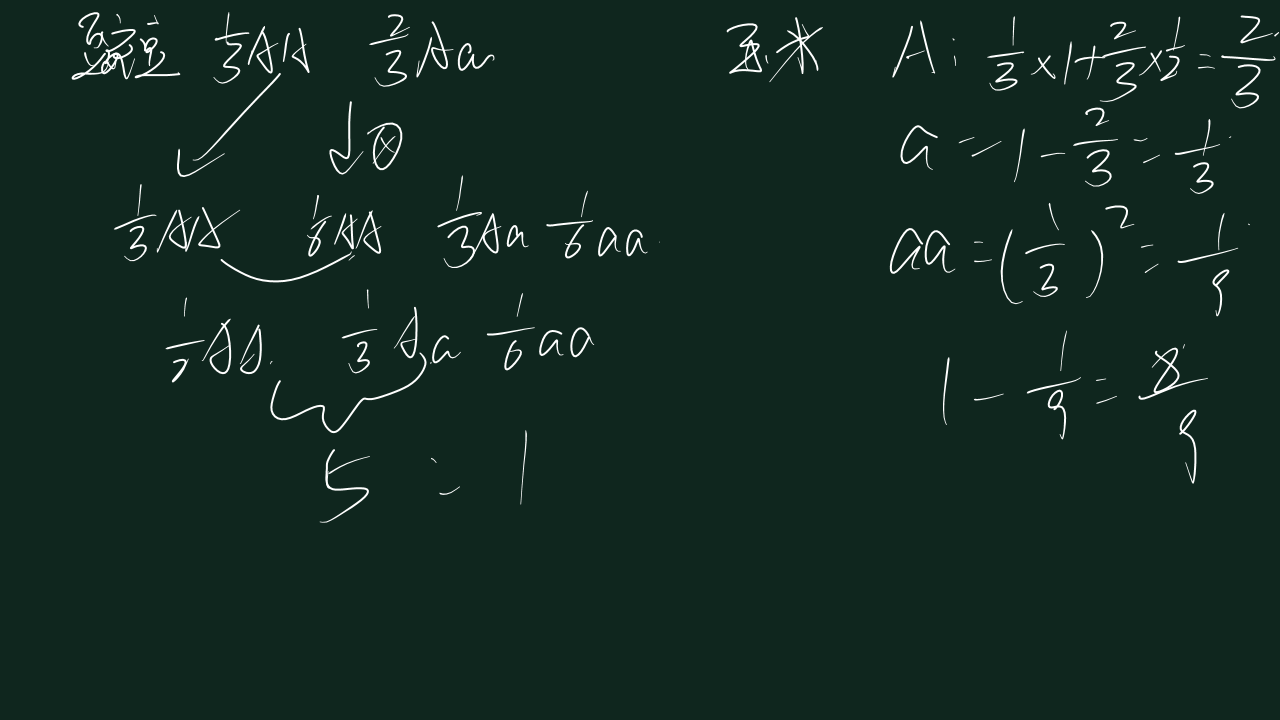 豌豆 1/3 AA 2/3 Aa
⊗
1/3 AA 1/6 AA 1/3 Aa 1/6 aa
1/2 AA 1/3 Aa 1/6 aa
5 : 1
玉米 A: 1/3 × 1 + 2/3 × 1/2 = 2/3
a = 1 - 2/3 = 1/3
aa = (1/3)² = 1/9
1 - 1/9 = 8/9